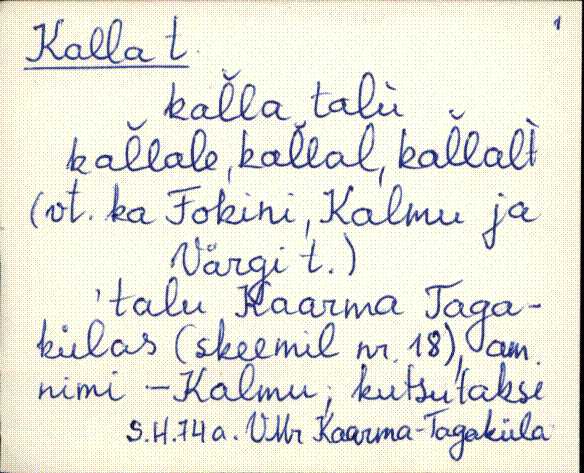 1
Kalla t.
kal̆la talù
kal̆lale, kal̆lal, kal̆lalt̀
(vt. ka Fokini, Kalmu ja
Värgi t.)
'talu Kaarma Taga-
külas (skeemil nr. 18), am.
nimi – Kalmu; kutsutakse
S.H.74a. VMr Kaarma-Tagaküla